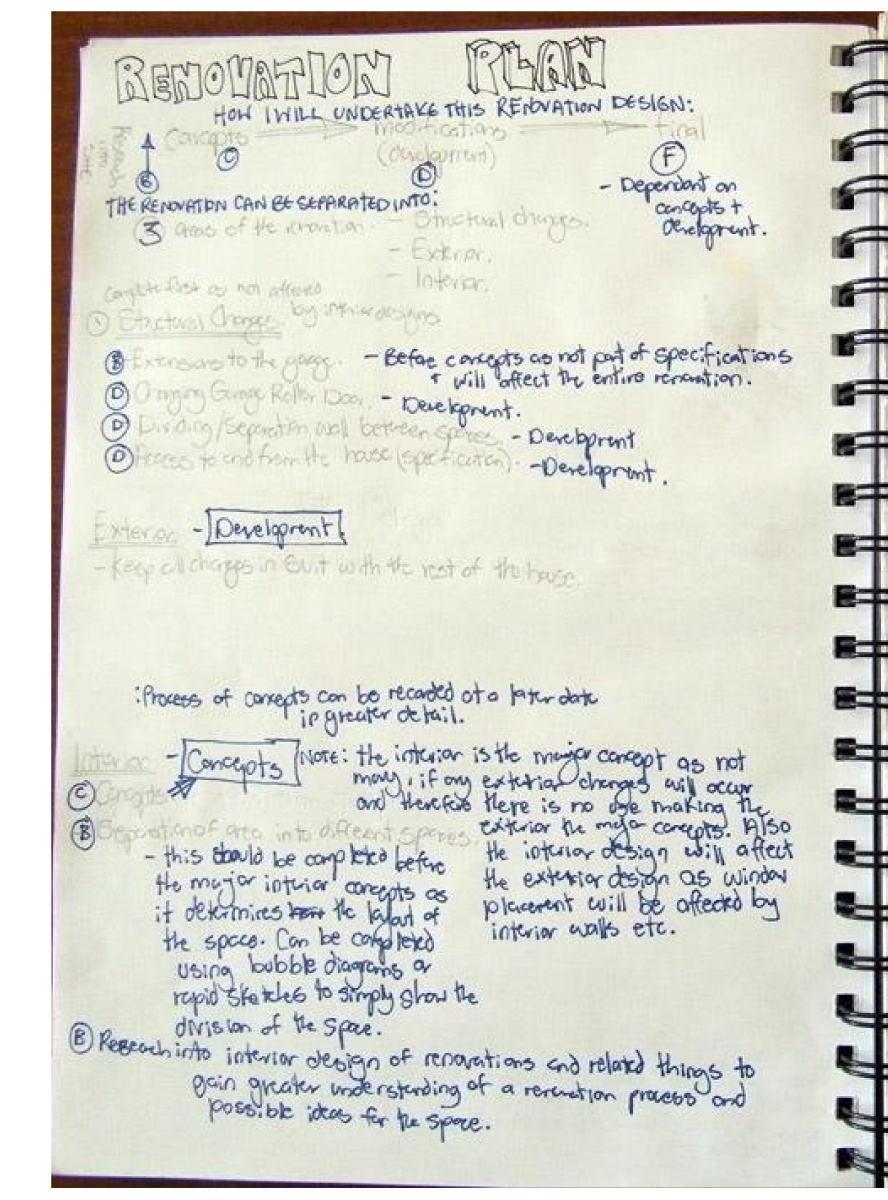 RENOVATION PLAN
HOW I WILL UNDERTAKE THIS RENOVATION DESIGN:
Research
Concepts modifications final
(development)
B C D F
- Dependant on
concepts +
development.
THE RENOVATION CAN BE SEPARATED INTO:
3 areas of the renovation. - Structural changes.
- Exterior.
- Interior.
Complete first as not affected
by interior designs
① Structural Changes.
B Extensions to the garage. - Before concepts as not part of specifications
+ will affect the entire renovation.
D Changing Garage Roller Door. - Development.
D Dividing/Separation wall between spaces. - Development
D Access to and from the house (specification). - Development.
Exterior - Development.
- Keep all changes in suit with the rest of the house.
: Process of concepts can be recorded at a later date
in greater detail.
Interior - Concepts
C Concepts.
B Separation of area into different spaces.
- this should be completed before
the major interior concepts as
it determines the layout of
the space. Can be completed
using bubble diagrams or
rapid sketches to simply show the
division of the space.
NOTE: the interior is the major concept as not
many, if any exterior changes will occur
and therefore there is no use making the
exterior the major concepts. Also
the interior design will affect
the exterior design as window
placement will be affected by
interior walls etc.
B Research into interior design of renovations and related things to
gain greater understanding of a renovation process and
possible ideas for the space.